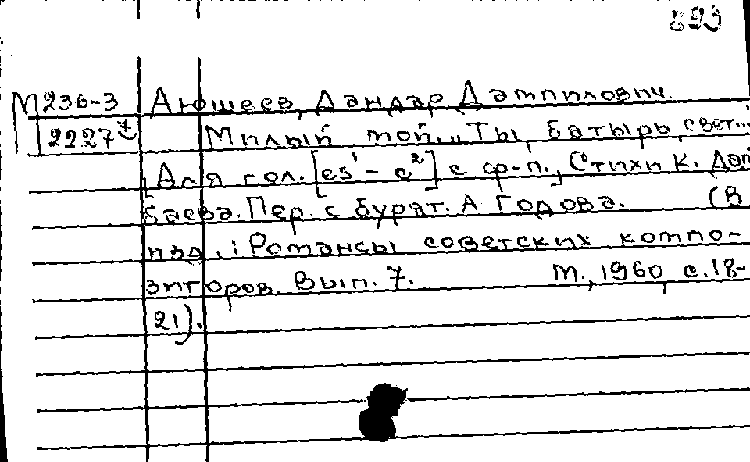 893
М236-3 Аюшеев, Дандар Дампилович.
2227 Милый мой. „Ты, батырь, свет...
[Для гол. [es¹-e²] с ф-п., Стихи К. Дам
баева. Пер. с бурят. А Годова. (В
изд.: Романсы советских компо-
зиторов. Вып. 7. М., 1960, с.18-
21).